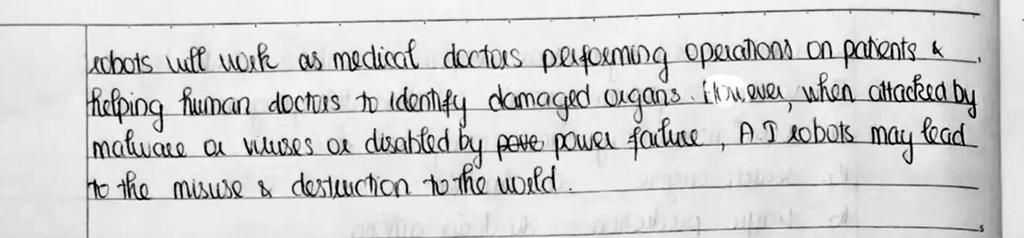 robots will work as medical doctors performing operations on patients &
helping human doctors to identify damaged organs. However, when attacked by
malware or viruses or disabled by powe power failure, A.I robots may lead
to the misuse & destruction to the world.